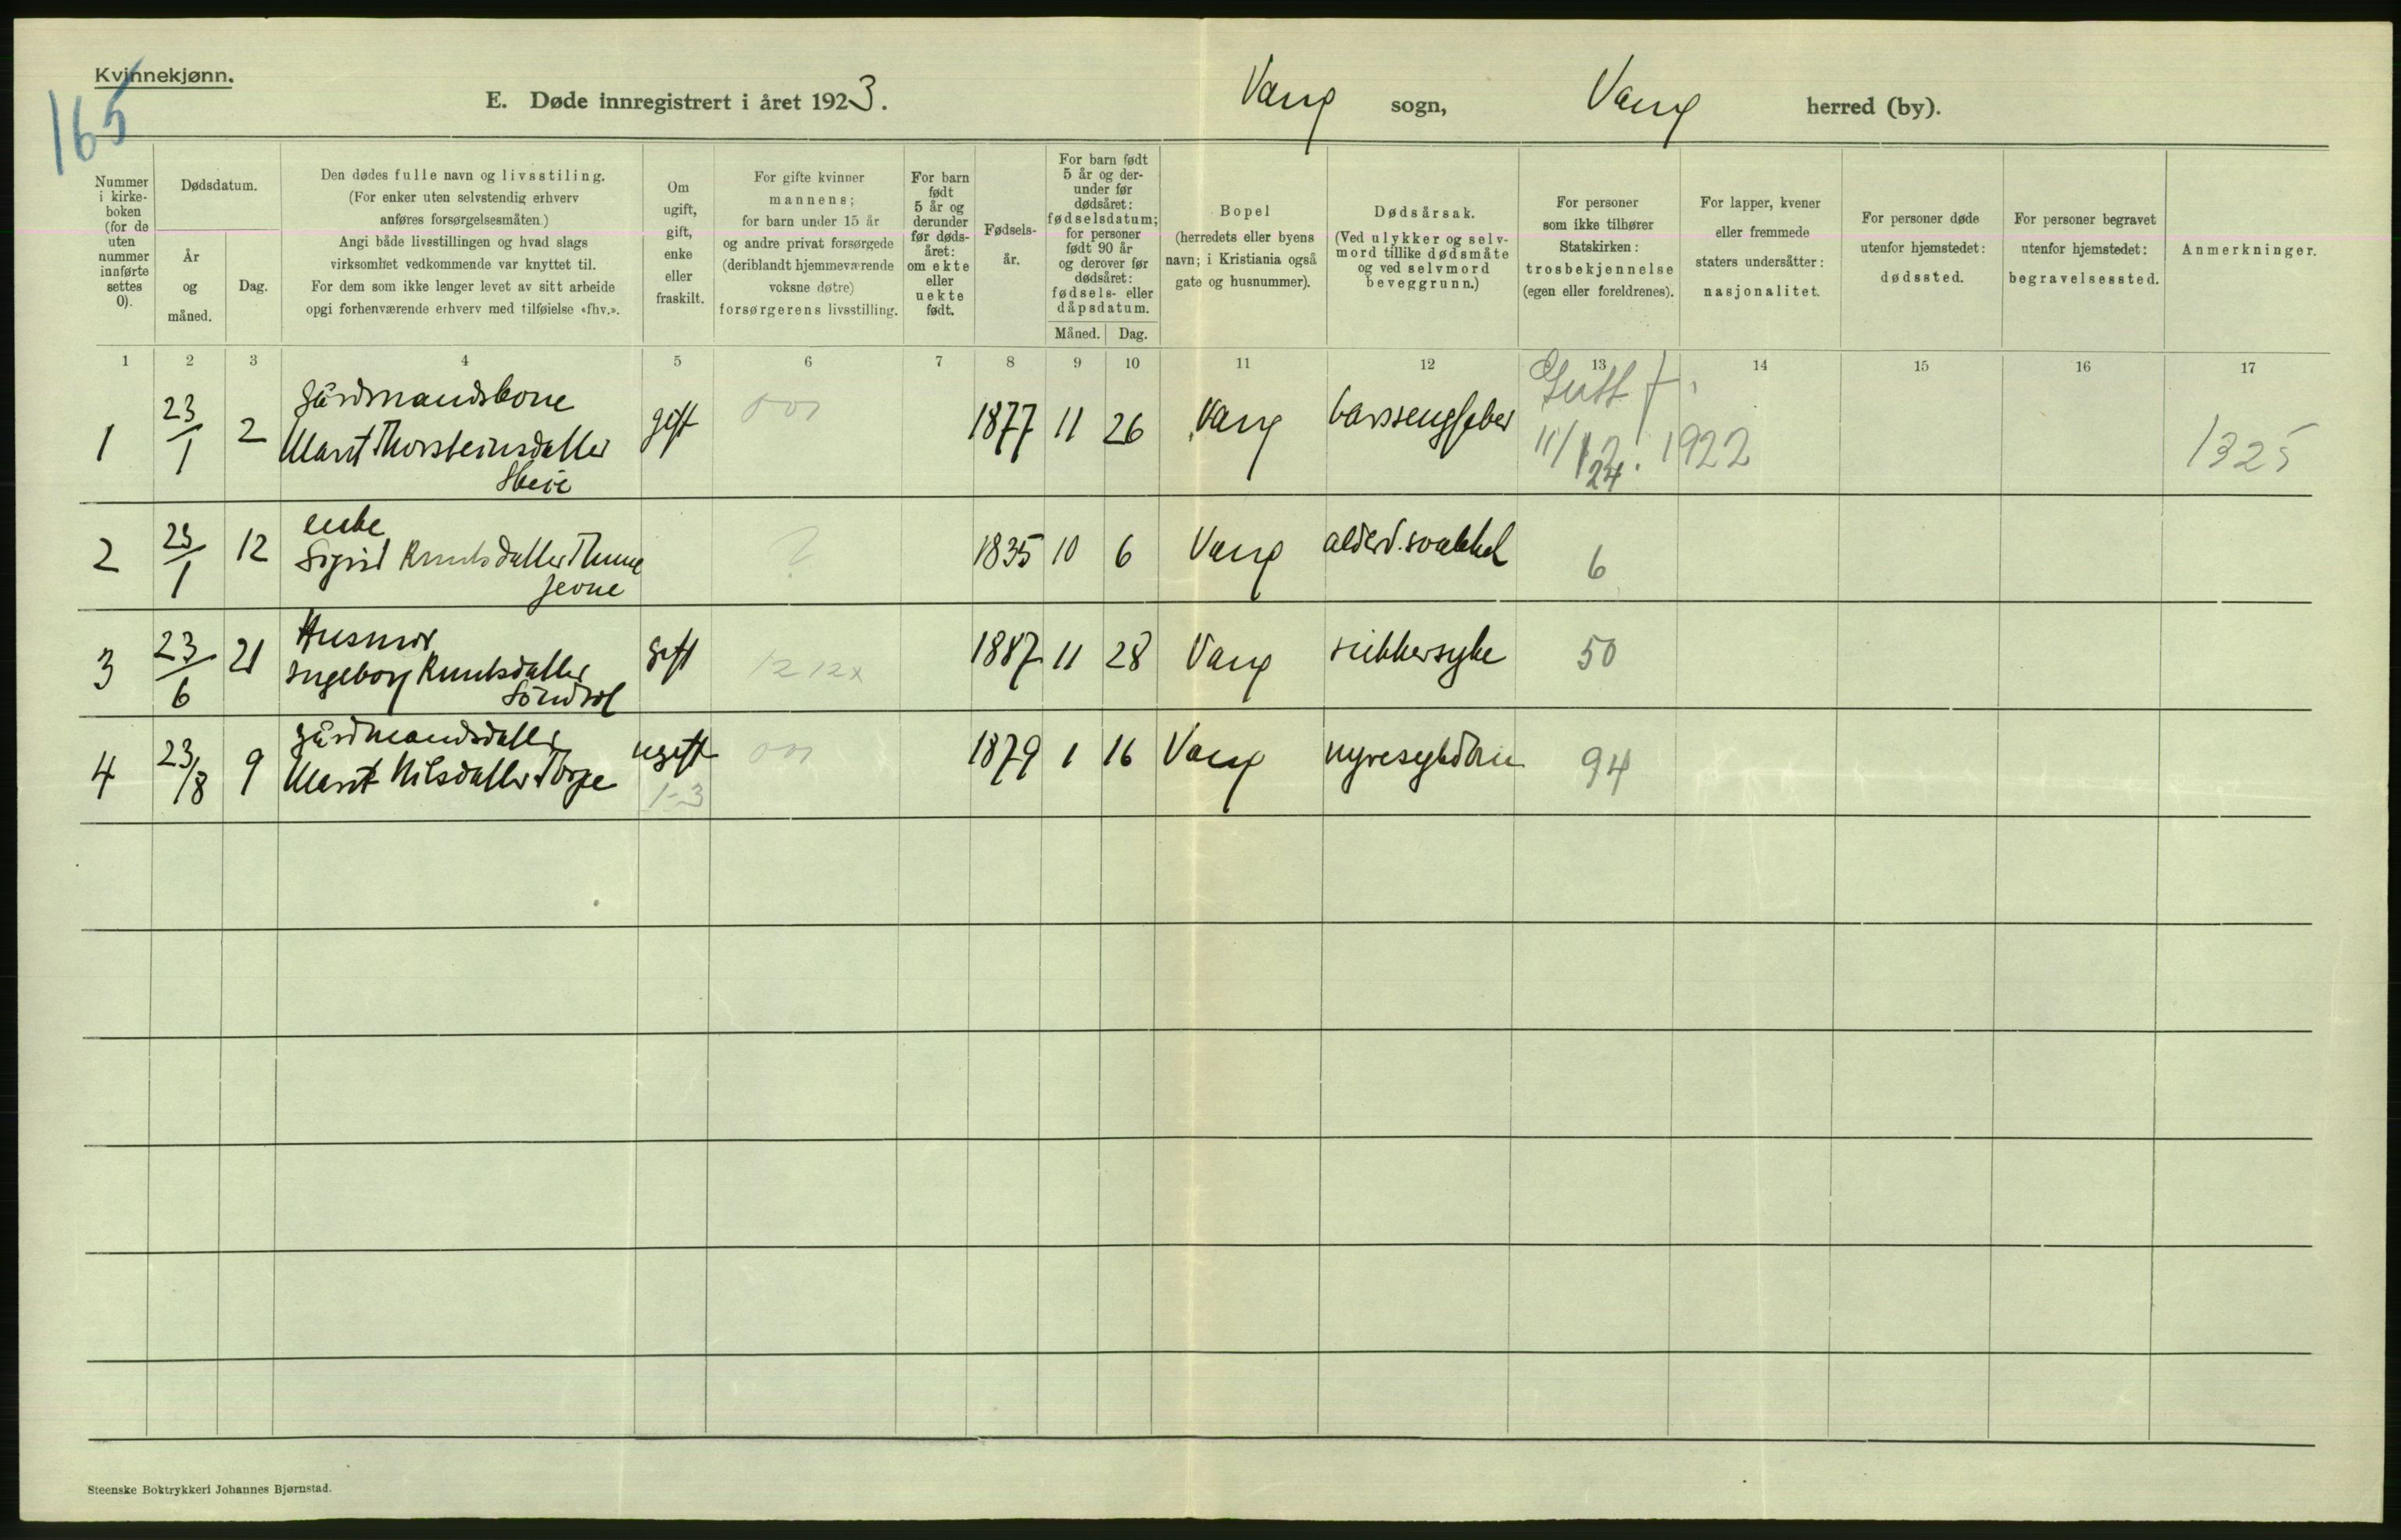 Kvinnekjønn.
165
E. Døde innregistrert i året 1923.
Vang sogn, Vang herred (by).
Nummer i kirke- boken (for de uten nummer innførte settes 0).
Dødsdatum.
År og måned.
Dag.
Den dødes fulle navn og livsstiling.
(For enker uten selvstendig erhverv
anføres forsørgelsesmåten.)
Angi både livsstillingen og hvad slags
virksomhet vedkommende var knyttet til.
For dem som ikke lenger levet av sitt arbeide
opgi forhenværende erhverv med tilføielse «fhv.».
Om ugift, gift, enke eller fraskilt.
For gifte kvinner
mannens;
for barn under 15 år
og andre privat forsørgede
(deriblandt hjemmeværende
voksne døtre)
forsørgerens livsstilling.
For barn født 5 år og derunder før døds- året: om ekte eller uekte født.
Fødsels- år.
For barn født 5 år og der- under før dødsåret: fødselsdatum; for personer født 90 år og derover før dødsåret: fødsels- eller dåpsdatum.
Måned. Dag.
Bopel
(herredets eller byens
navn; i Kristiania også
gate og husnummer).
Dødsårsak.
(Ved ulykker og selv-
mord tillike dødsmåte
og ved selvmord
beveggrunn.)
For personer
som ikke tilhører
Statskirken:
trosbekjennelse
(egen eller foreldrenes).
For lapper, kvener
eller fremmede
staters undersåtter:
nasjonalitet.
For personer døde
utenfor hjemstedet:
dødssted.
For personer begravet
utenfor hjemstedet:
begravelsessted.
Anmerkninger.
1 2 3 4 5 6 7 8 9 10 11 12 13 14 15 16 17
1 23/1 2 gårdmandskone gift 001 1877 11 26 Vang barsselfeber Gutt f. 1325
Marit Thorsteinsdatter 11/12 1922
24
2 23/1 12 enke ? 1835 10 6 Vang alderd.svakhet 6
Sigrid Knutsdatter Thune
3 23/6 21 Husmor gift 1212x 1887 11 28 Vang sukkersyke 50
Ingeborg Knutsdatter
4 23/8 9 gårdmandsdatter ugift 001 1879 1 16 Vang nyresykdom 94
Marit Nilsdatter Torpe 1-3
Steenske Boktrykkeri Johannes Bjørnstad.